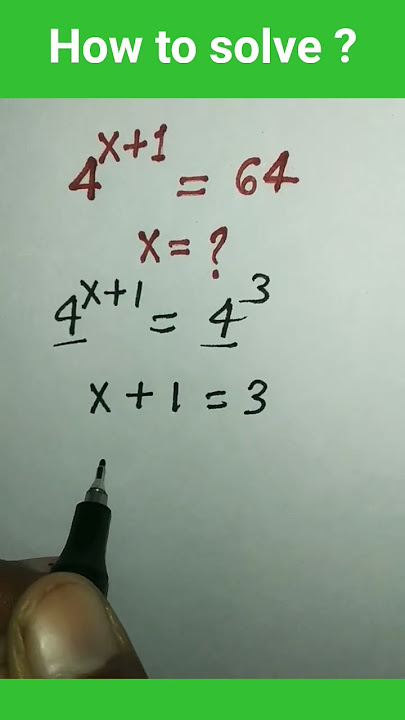 How to solve ?
4^{x+1} = 64
x = ?
4^{x+1} = 4^3
x + 1 = 3